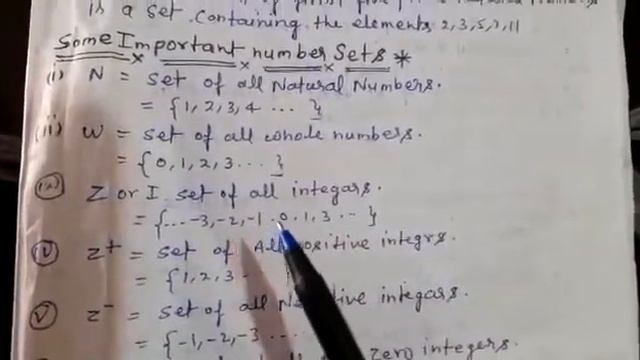 is a set containing the elements 2, 3, 5, 7, 11
Some Important number Sets *
(i) N = set of all Natural Numbers.
= {1, 2, 3, 4 ... }
(ii) W = set of all whole numbers.
= {0, 1, 2, 3 ... }
Z or I set of all integars.
= {... -3, -2, -1 . 0 . 1, 3 .. }
(iv) z+ = set of All positive integrs.
= {1, 2, 3 -
(v) z- = set of all integars.
= {-1, -2, -3 ...
zero integers.